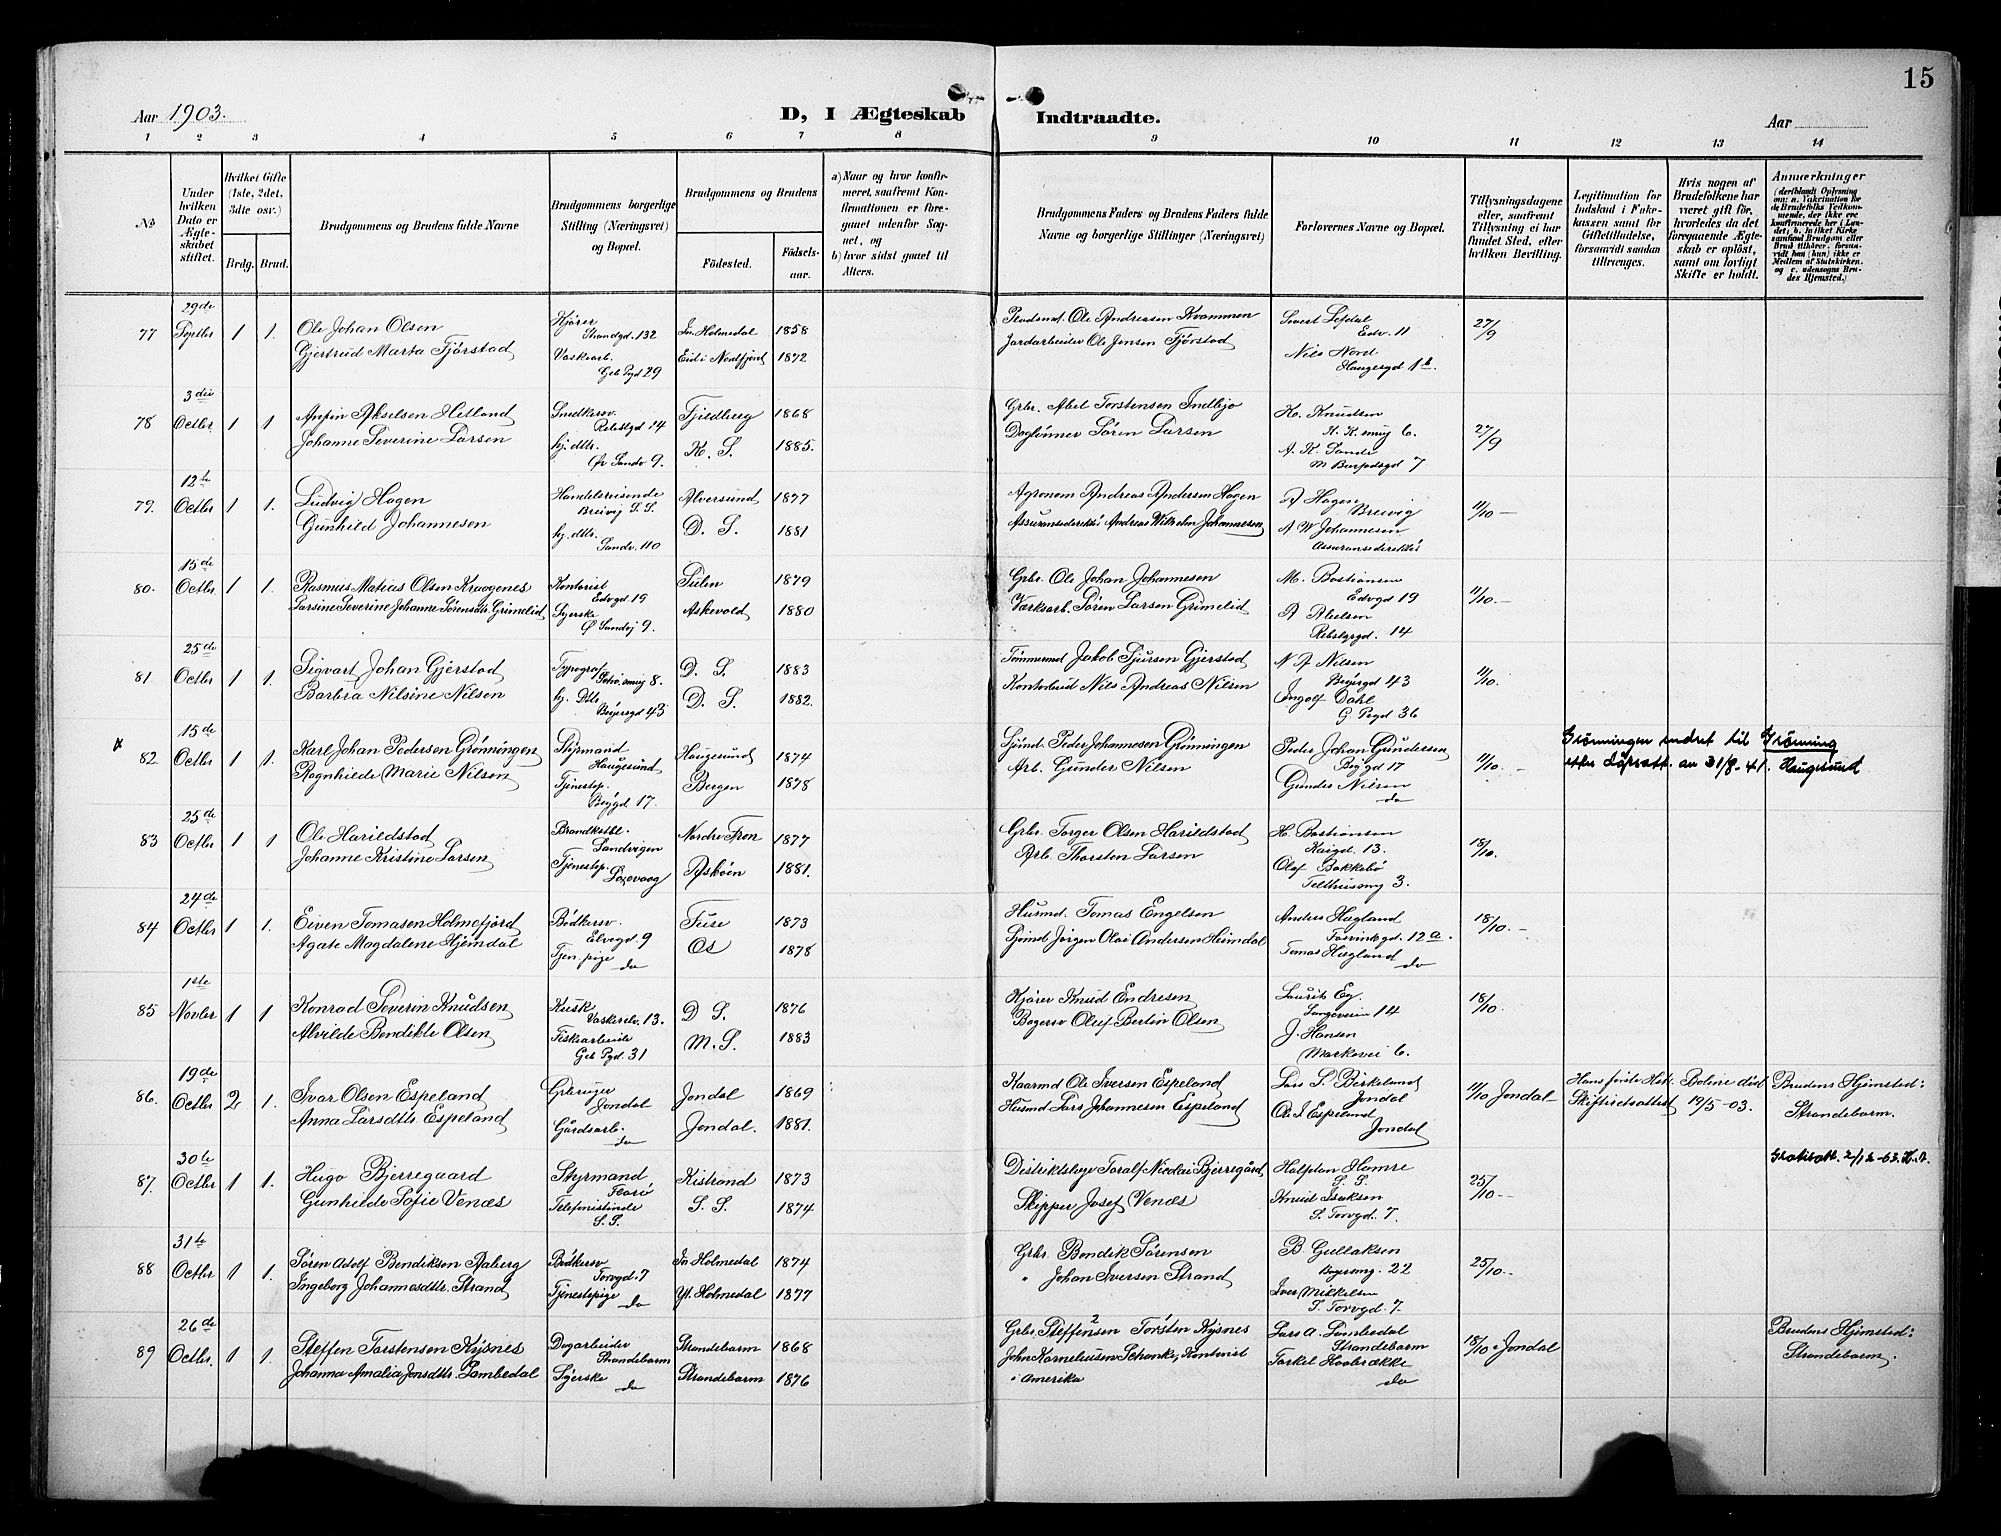 15
Aar 1903.
D, I Ægteskab Indtraadte.
Aar
1 2 3 4 5 6 7 8 9 10 11 12 13 14
No
Under hvilken Dato er Ægteskabet stiftet.
Hvilket Gifte (1ste, 2det, 3dte osv.)
Brdg. Brud.
Brudgommens og Brudens fulde Navne
Brudgommens borgerlige Stilling (Næringsvei) og Bopæl.
Brudgommens og Brudens
Födested. Födselsaar.
a) Naar og hvor konfirmeret, saafremt Konfirmationen er foregaaet udenfor Sognet, og
b) hvor sidst gaaet til Alters.
Brudgommens Faders og Brudens Faders fulde Navne og borgerlige Stillinger (Næringsvei)
Forlovernes Navne og Bopæl.
Tillysningsdagene eller, saafremt Tillysning ei har fundet Sted, efter hvilken Bevilling.
Legitimation for Indskud i Enkekassen samt for Giftetilladelse, forsaavidt saadan tiltrænges.
Hvis nogen af Brudefolkene har været gift för, hvorledes da det foregaaende Ægteskab er oplöst, samt om lovligt Skifte er holdt.
Anmærkninger
29de
77 Septbr 1 1. Ole Johan Olsen Kjører Strandgd. 132 In. Holmedal 1858 Ole Andreasen Kvammen Sivert Lefdal Edv. 11 27/9
Gjertrud Marta Fjørstad Vaskearb. Geb Pgd 29 Eid i Nordfjord 1872 Jordarbeider Ole Jensen Fjørstad Nils Nord Haugesgd 1 b
3die
78 Octbr 1 1 Arfin Akselsen Hetland Smedkersv. Rebslgd 14 Fjeldberg 1868 Grbr. Abel Torstensen Indbjo K. Knudsen 27/9
Johanne Severine Larsen hj. dttr. Øv Sandv 9. K. S. 1885. Daglønner Søren Larsen A. K. Sande
12te
79. Octbr 1 1. Ludvig Hagen Handelsreisende Breivig S. S. Alversund 1877 Agronom Andreas Andersen Hagen A Hagen Breivig 11/10 —
Gunhild Johannesen hj. dttr. Sandv. 110 D. S. 1881 Assuransedirektør Andreas Wilhelm Johannesen A W Johannesen Assuransedirektør
15de
80. Octbr 1 1. Rasmus Matias Olsen Kragenes Kontorist Edvgd 19 Sulen 1879 Grbr. Ole Johan Johannesen M. Bastiansen Edvgd 19 11/10. —
Larsine Severine Johanne Sørensdtr Grimelid Syerske Ø Sandvg 9. Askevold 1880 Værksarb. Søren Larsen Grimelid A Nielsen Rebslgrgd. 14
25de
81. Octbr 1 1. Sigvart Johan Gjerstad Typograf 8. D. S. 1883 Tømmermd Jakob Sjursen Gjerstad N A Nilsen Bøjersgd 43 11/10.
Barbra Nilsine Nilsen hj. Dttr Bøjersgd 43 D. S. 1882. Kontorbud Nils Andreas Nilsen Ingolf Dahl G Pegd 36
15de
82. Octbr 1 1. Karl Johan Pedersen Grønningen Styrmand Haugesund Haugesund 1874 Sjømd. Peder Johannesen Grønningen Peder Johan Gundersen Bøjgd 17 11/10. — Grønningen endret til Grønning
Ragnhilde Marie Nilsen Tjenestep. Bøjgd 17. Bergen 1878 Arb. Gunder Nilsen Gunder Nilsen do efter 31/8-41. Haugesund
25de
83 Octbr 1 1 Ole Harildstad Brandkstbl. Sandvigen Nordre Fron 1877 Grbr. Torger Olsen Harildstad H. Bastiansen Kaigd. 13. 18/10.
Johanne Kristine Larsen Tjenestep. Laxevaag Askøen 1881. Arb. Thorsten Larsen Olaf Bakkebø Telthussmg 3.
24de
84 Octbr 1 1. Eiven Tomasen Holmefjord Bødkersv. Elvegd 9 Fuse 1873 Husmd. Tomas Engelsen Anders Hægland 12 a. 18/10. —
Agate Magdalene Hjemdal Tjen. pige do Os 1878 Sjømd Jørgen Olai Andersen Heimdal Tomas Hægland do
1ste
85 Novbr 1 1 Konrad Severin Knudsen Kusk Vaskerelv. 13. D S. 1876 Kjører Knud Endresen Laurits Eg. 14 18/10.
Alvilde Bendikte Olsen Fiskearbeide Geb Pgd. 31 M. S. 1883 Bøgersv Oluf Bertin Olsen J. Hansen Markevei 6.
19de
86. Octbr 2 1. Ivar Olsen Espeland Grbruger Jondal Jondal 1869 Kaarmd Ole Iversen Espeland Lars S. Birkeland Jondal 11/10 Jondal — Hans første Skifteretsattest Boline død 19/5-03. Brudens Hjemsted: Strandebarm.
Anna Larsdttr. Espeland Gårdsarb. do Jondal. 1881. Husmd Lars Johannesen Espeland Ole I Espeland Jondal
30te
87. Octbr 1 1. Hugo Bjerregaard Styrmand Florø Kistrand 1873 Distriktslæge Toralf Nicolai Bjerregård Halfdan Hamre S. S. 25/10. —
Gunhilde Sofie Venæs Telefonistinde S. S. S. S. 1874 Skipper Josef Venæs Knud Isaksen S. Torvgd. 7.
31te
88 Octbr 1 1. Søren Adolf Bendiksen Aaberg Bødkersv Torvgd. 7 In Holmedal 1874 Grbr. Bendik Sørensen B. Gullaksen 22 25/10. —
Ingeborg Johannesdttr. Strand Tjenestepige do Yt. Holmedal 1877 " Johan Iversen Strand Iver Mikkelsen S. Torvgd. 7.
26de
89 Octbr. 1 1. Steffen Torstensen Kysnes Dagarbeider Strandebarm Strandebarm 1868 Grbr. Steffensen 2 Torsten 1 Kysnes Lars A. Lambedal Strandebarm 18/10 Jondal Brudens Hjemsted: Strandebarm.
Johanna Amalia Jonsdttr. Lambedal Syerske do Strandebarm 1876 John Korneliussen Kontorist i Amerika Torkel Haabrække do